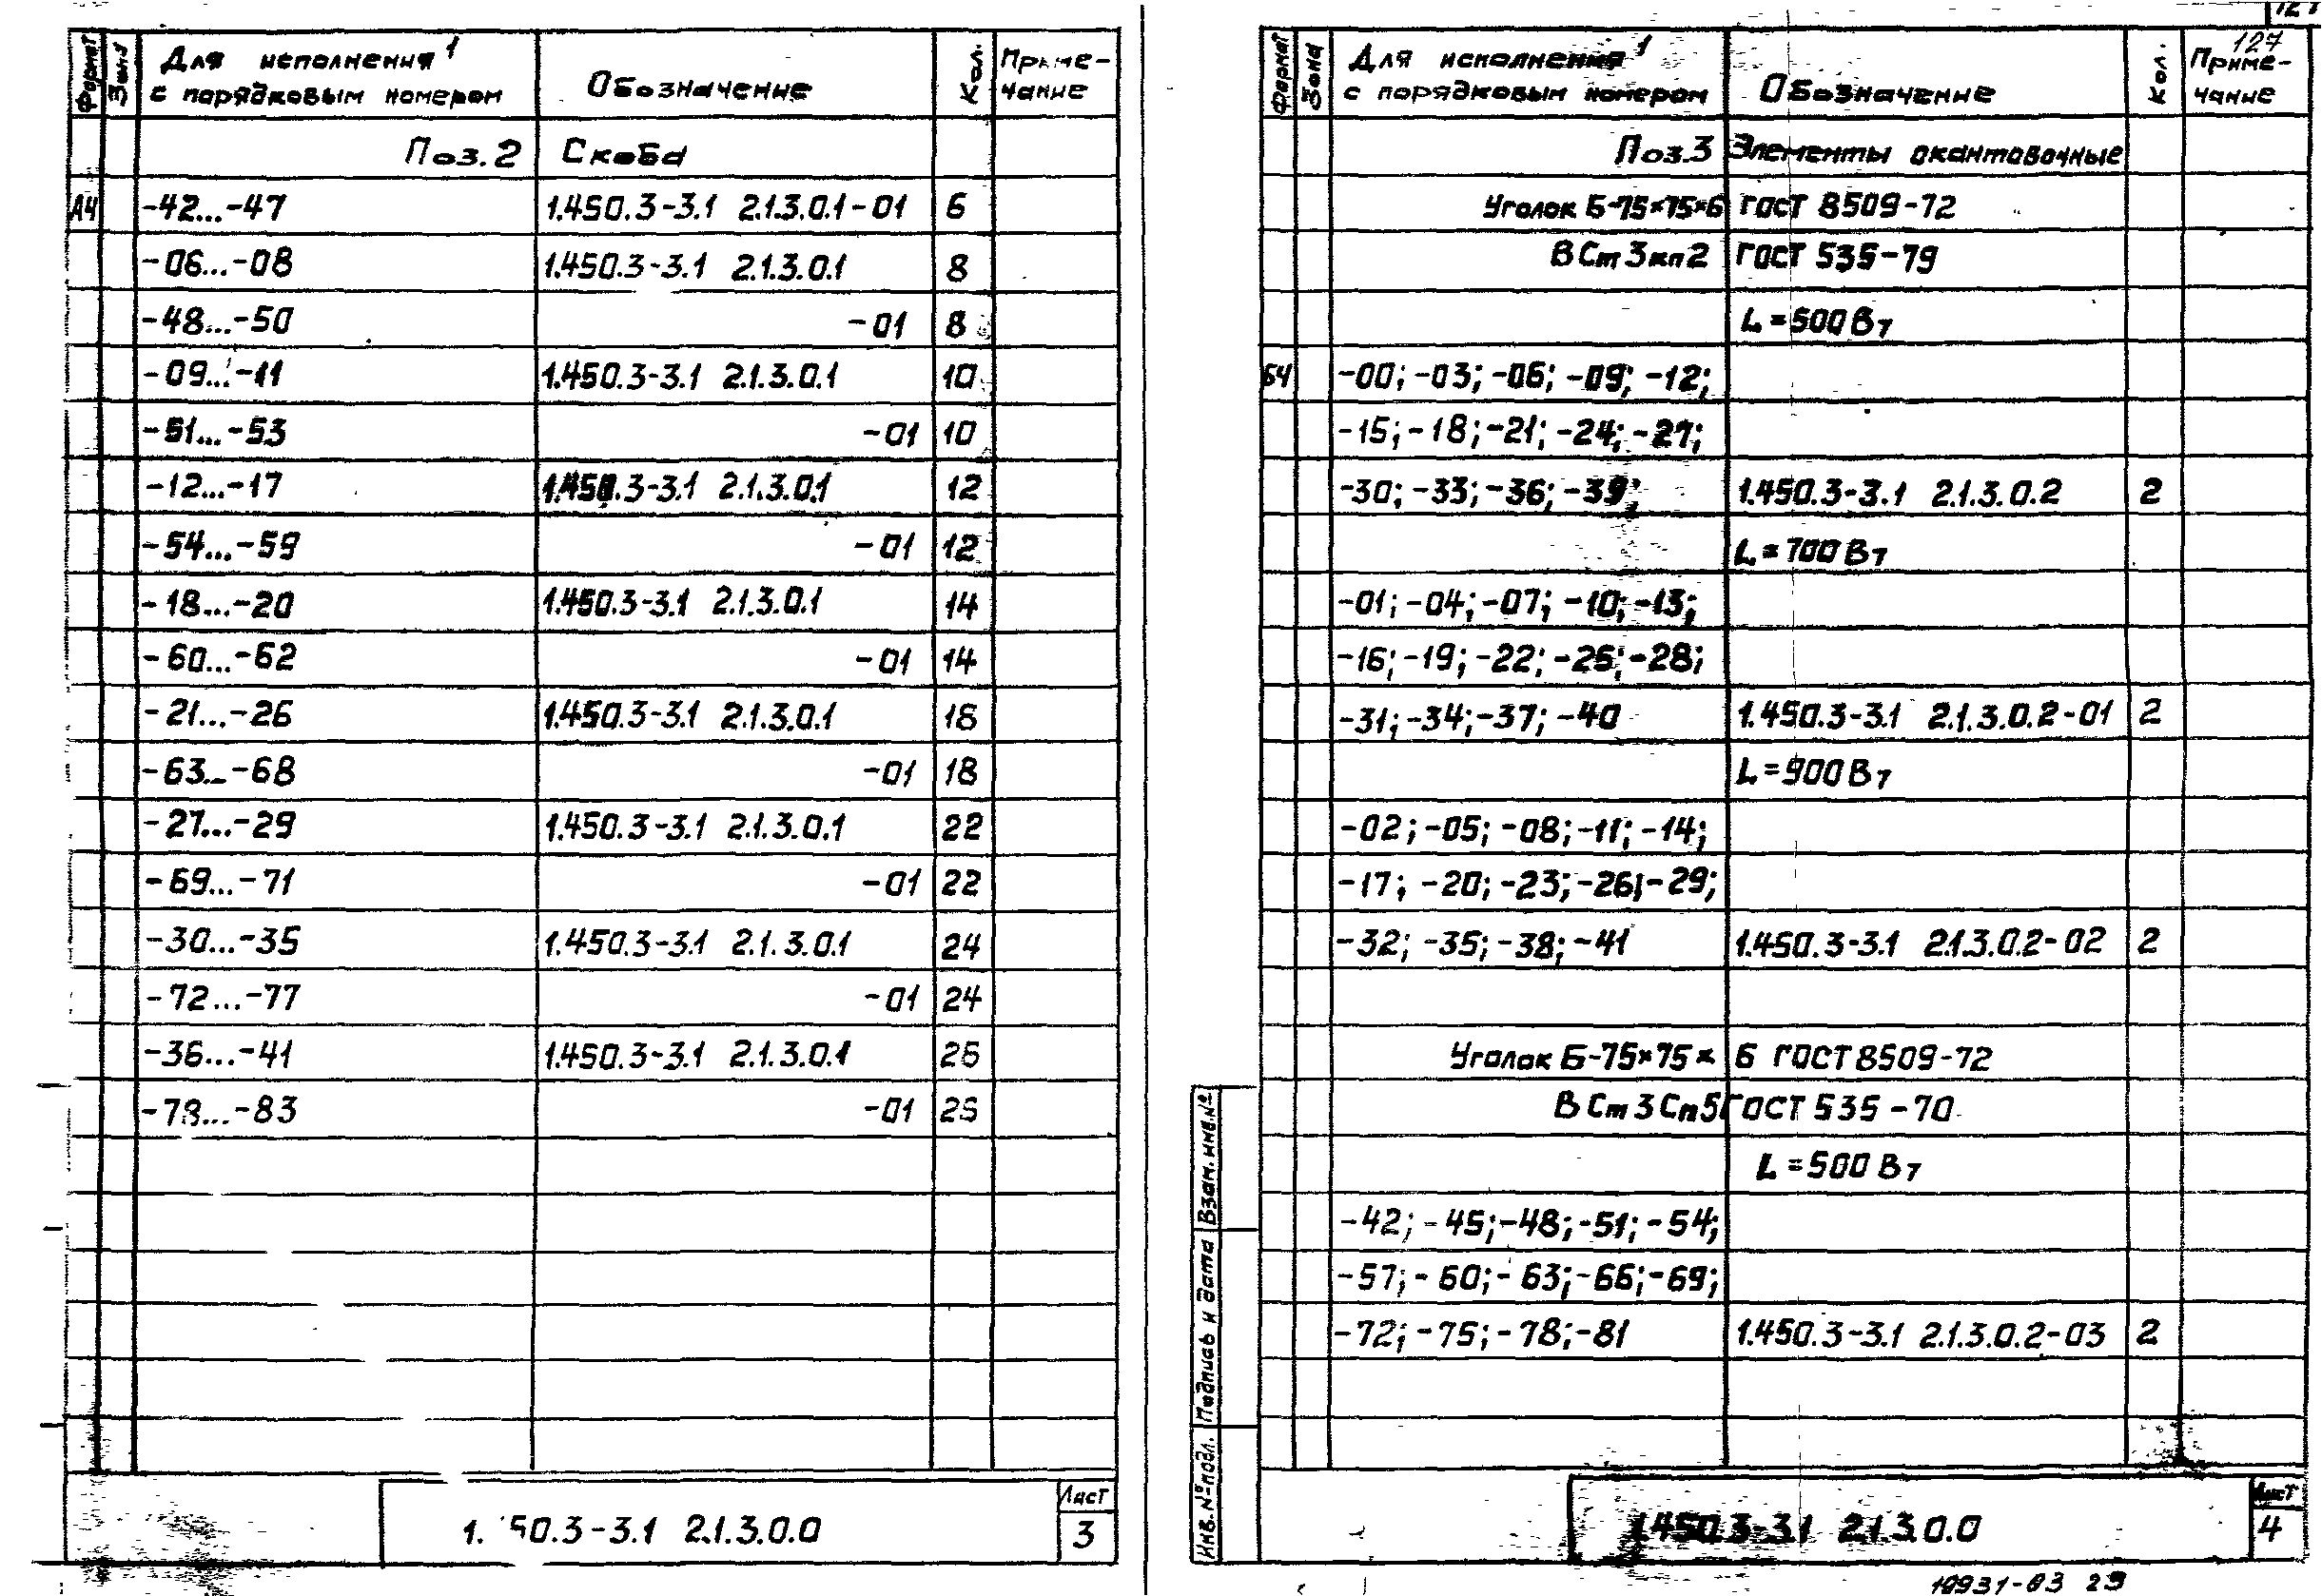 Формат Зона Для исполнения¹ с порядковым номером Обозначение Кол. Примечание
Поз.2 Скоба
А4 -42...-47 1.450.3-3.1 2.1.3.0.1-01 6
-06...-08 1.450.3-3.1 2.1.3.0.1 8
-48...-50 -01 8
-09...-11 1.450.3-3.1 2.1.3.0.1 10
-51...-53 -01 10
-12...-17 1.450.3-3.1 2.1.3.0.1 12
-54...-59 -01 12
-18...-20 1.450.3-3.1 2.1.3.0.1 14
-60...-62 -01 14
-21...-26 1.450.3-3.1 2.1.3.0.1 18
-63...-68 -01 18
-27...-29 1.450.3-3.1 2.1.3.0.1 22
-69...-71 -01 22
-30...-35 1.450.3-3.1 2.1.3.0.1 24
-72...-77 -01 24
-36...-41 1.450.3-3.1 2.1.3.0.1 26
-78...-83 -01 26
1. 50.3-3.1 2.1.3.0.0
Лист
3
127
Формат Зона Для исполнения¹ с порядковым номером Обозначение Кол. Примечание
Поз.3 Элементы окантовочные
Уголок Б-75×75×6 ГОСТ 8509-72
ВСт3кп2 ГОСТ 535-79
L=500 Вт
Б4 -00; -03; -06; -09; -12;
-15; -18; -21; -24; -27;
-30; -33; -36; -39; 1.450.3-3.1 2.1.3.0.2 2
L=700 Вт
-01; -04; -07; -10; -13;
-16; -19; -22; -25; -28;
-31; -34; -37; -40 1.450.3-3.1 2.1.3.0.2-01 2
L=900 Вт
-02; -05; -08; -11; -14;
-17; -20; -23; -26; -29;
-32; -35; -38; -41 1.450.3-3.1 2.1.3.0.2-02 2
Уголок Б-75×75× 6 ГОСТ 8509-72
ВСт3Сп5 ГОСТ 535-70
L=500 Вт
-42; -45; -48; -51; -54;
-57; -60; -63; -66; -69;
-72; -75; -78; -81 1.450.3-3.1 2.1.3.0.2-03 2
Инв.№подл. Подпись и дата Взам.инв.№
1.450.3-3.1 2.1.3.0.0
Лист
4
19931-03 29